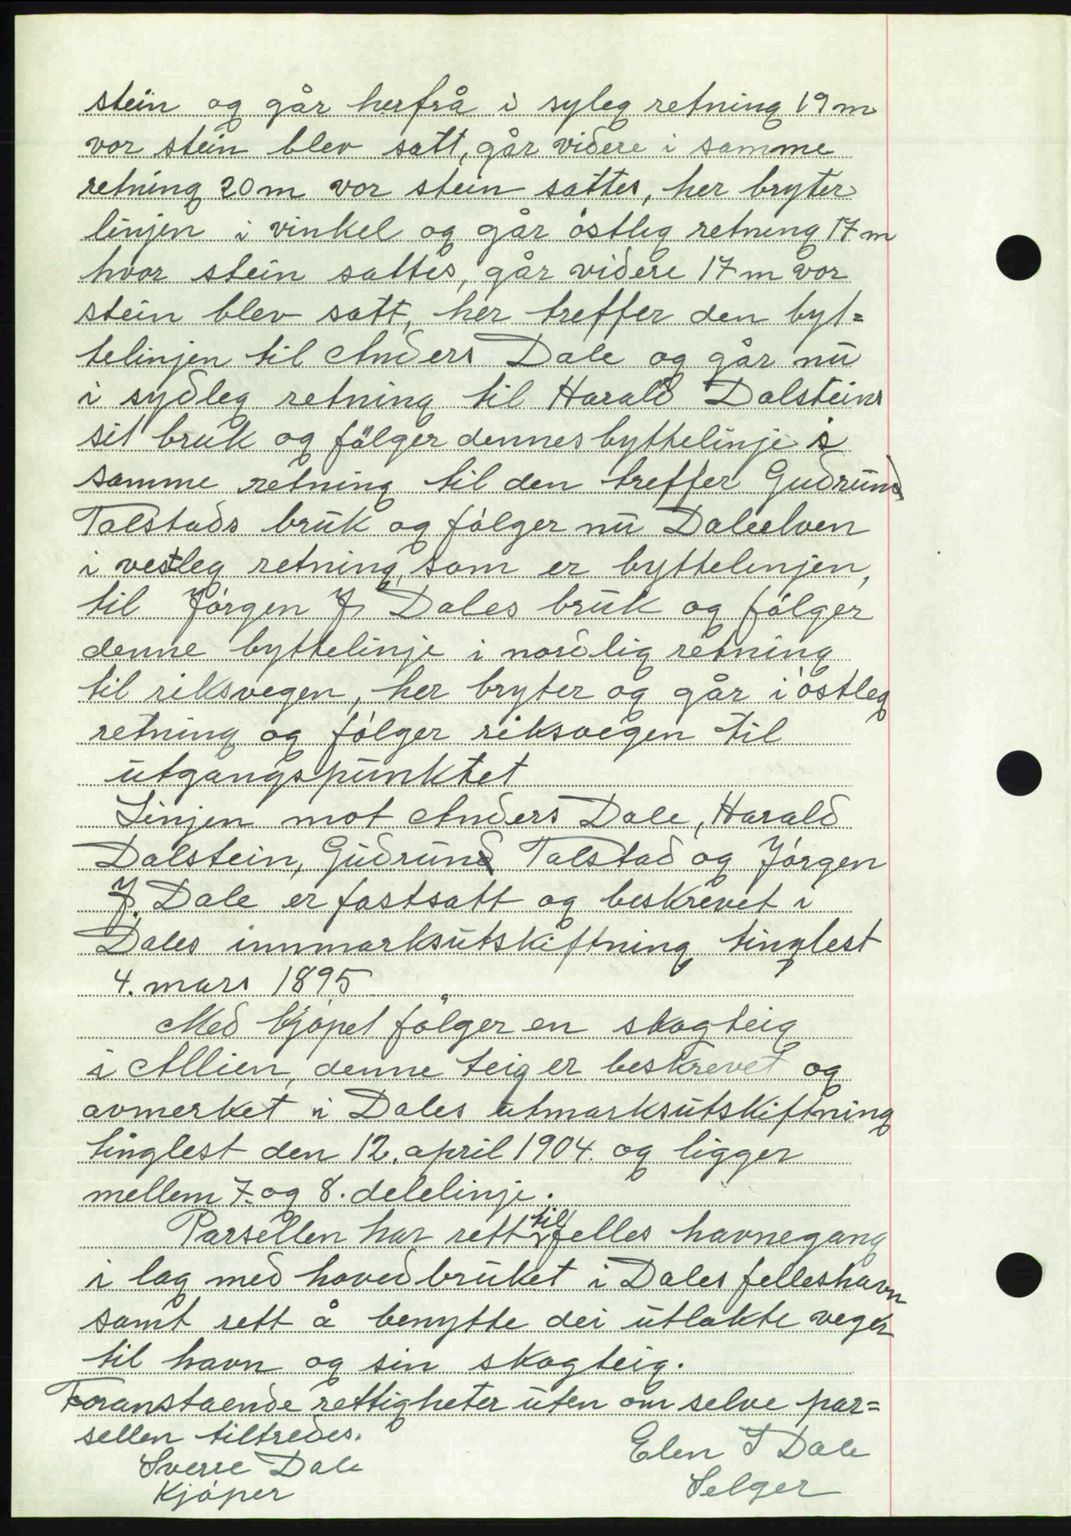 stein og går herfrå i syleg retning 19 m
vor stein blev satt, går videre i samme
retning 20 m vor stein sattes, her bryter
linjen i vinkel og går østleg retning 17 m
hvor stein sattes, går videre 17 m vor
stein blev satt, her treffer den byt=
telinjen til Anders Dale og går nu
i sydleg retning til Harald Dalsteins
sit bruk og følger dennes byttelinje i
samme retning til den treffer Gudrund
Talstads bruk og følger nu Daleelven
i vestleg retning, som er byttelinjen,
til Jørgen J. Dales bruk og følger
denne byttelinje i nordlig retning
til riksvegen, her bryter og går i østleg
retning og følger riksvegen til
utgangspunktet
Linjen mot Anders Dale, Harald
Dalstein, Gudrund Talstad og Jørgen
J. Dale er fastsatt og beskrevet i
Dales innmarksutskiftning tinglest
4. mars 1895
Med kjøpet følger en skogteig
i Allien, denne teig er beskrevet og
avmerket i Dales utmarksutskiftning
tinglest den 12. april 1904. og ligger
mellem 7. og 8. delelinje.
Parsellen har rett til felles havnegang
i lag med hovedbruket i Dales felleshavn
samt rett å benytte dei utlakte veger
til havn og sin skogteig.
Foranstaende rettigheter uten om selve par=
sellen tiltredes.
Elen J Dale
Sverre Dale
Selger
Kjøper